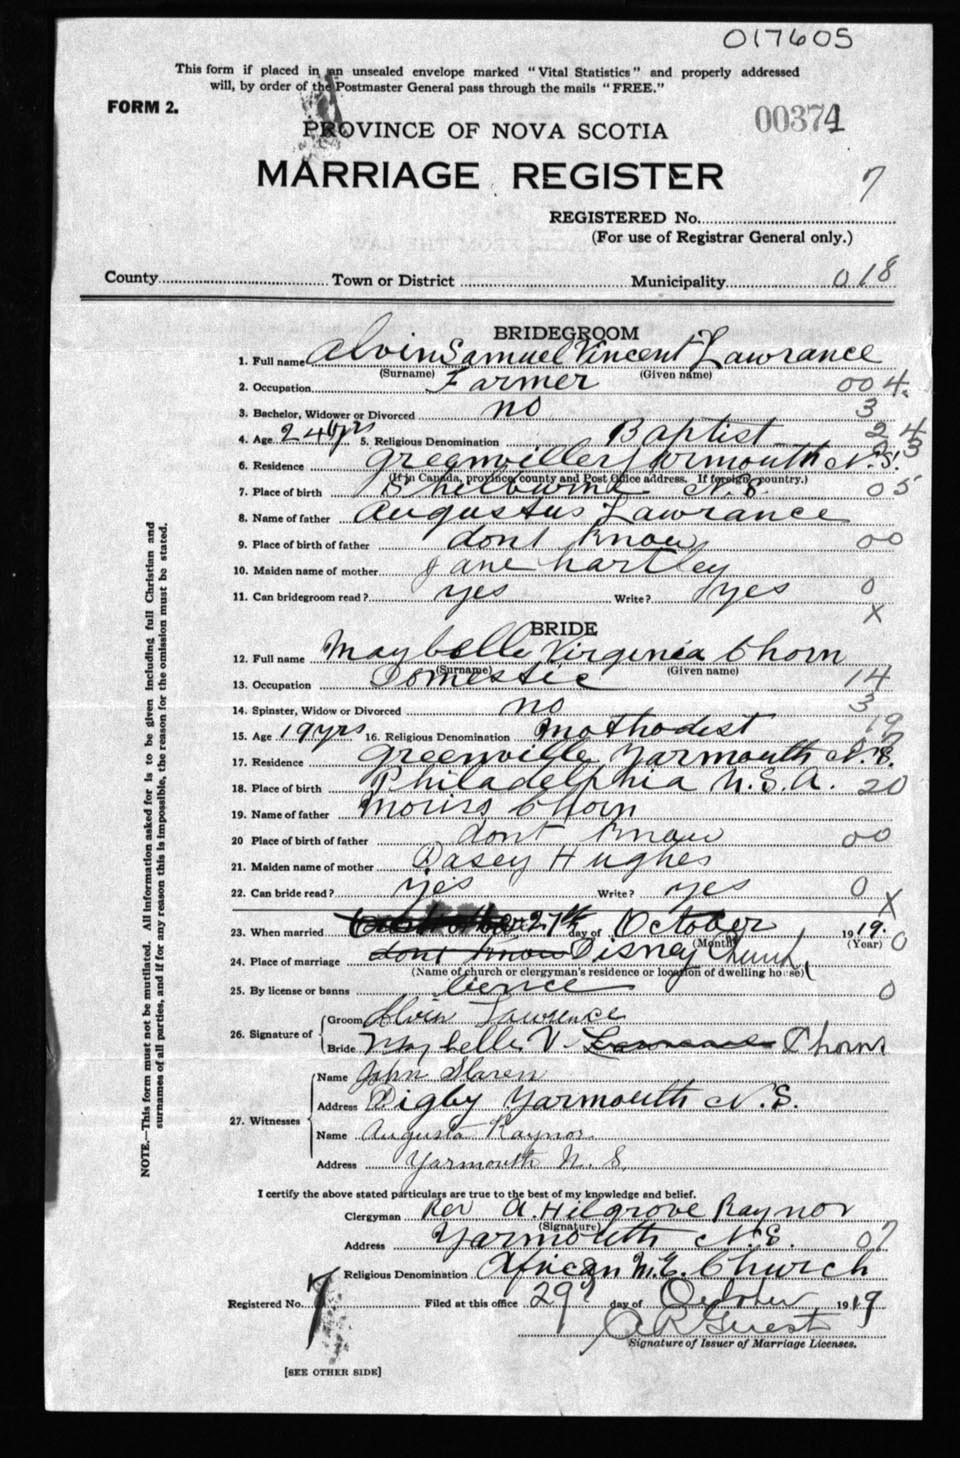 017605
This form if placed in an unsealed envelope marked "Vital Statistics" and properly addressed
will, by order of the Postmaster General pass through the mails "FREE."
FORM 2.
00371
PROVINCE OF NOVA SCOTIA
MARRIAGE REGISTER
7
REGISTERED No.
(For use of Registrar General only.)
County Town or District Municipality 018
BRIDEGROOM
1. Full name Alvin Samuel Vincent Lawrance
(Surname) (Given name)
2. Occupation Farmer 004
3. Bachelor, Widower or Divorced no 3
4. Age 24 yrs 5. Religious Denomination Baptist 24
6. Residence Greenville Yarmouth N.S. 3
(If in Canada, province, county and Post Office address. If foreign, country.)
7. Place of birth Shelburne N.S. 05
8. Name of father Augustus Lawrance
9. Place of birth of father dont know 00
10. Maiden name of mother Jane Hartley
11. Can bridegroom read? yes Write? yes 0
X
BRIDE
12. Full name Maybelle Virginia Chorn
(Surname) (Given name)
13. Occupation Domestic 14
14. Spinster, Widow or Divorced no 3
15. Age 19 yrs 16. Religious Denomination Mothodist 19
17. Residence Greenville Yarmouth N.S.
18. Place of birth Philadelphia U.S.A. 20
19. Name of father Moriss Chorn
20 Place of birth of father dont know 00
21. Maiden name of mother Dasey Hughes
22. Can bride read? yes Write? yes 0
X
23. When married 27th day of October 1919.
(Month) (Year) 0
24. Place of marriage dont know Disney Church
(Name of church or clergyman's residence or location of dwelling house)
25. By license or banns lience 0
26. Signature of Groom Alvin Lawrence
Bride Maybelle V. Lawrance Chorn
27. Witnesses Name John Slaren
Address Digby Yarmouth N.S.
Name Augusta Raynor
Address Yarmouth N.S.
I certify the above stated particulars are true to the best of my knowledge and belief.
Clergyman Rev A. Hilgrove Raynor
(Signature)
Address Yarmouth N.S. 07
Religious Denomination African M.E. Church
Registered No. 7 Filed at this office 29th day of October 1919
A R Guest
Signature of Issuer of Marriage Licenses.
[SEE OTHER SIDE]
NOTE.—This form must not be mutilated. All information asked for is to be given including full Christian and
surnames of all parties, and if for any reason this is impossible, the reason for the omission must be stated.